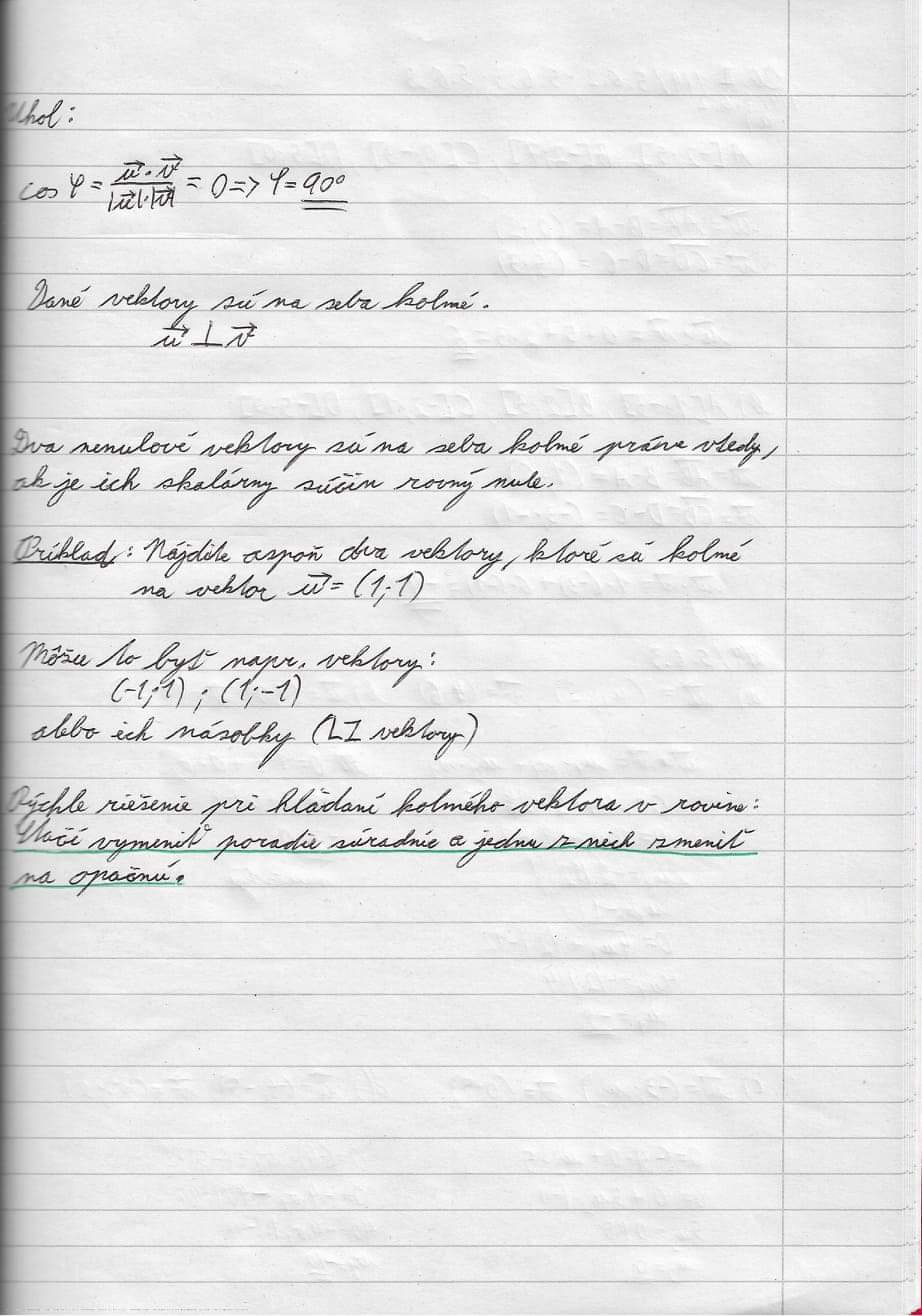 Uhol:
cos φ = u⃗ · v⃗ / |u⃗| · |v⃗| = 0 => φ = 90°
Dané vektory sú na seba kolmé.
u⃗ ⊥ v⃗
Dva nenulové vektory sú na seba kolmé práve vtedy,
ak je ich skalárny súčin rovný nule.
Príklad: Nájdite aspoň dva vektory, ktoré sú kolmé
na vektor u⃗ = (1;1)
Môžu to byť napr. vektory:
(-1;1) ; (1;-1)
alebo ich násobky (LZ vektory)
Rýchle riešenie pri hľadaní kolmého vektora v rovine:
Stačí vymeniť poradie súradníc a jednu z nich zmeniť
na opačnú.